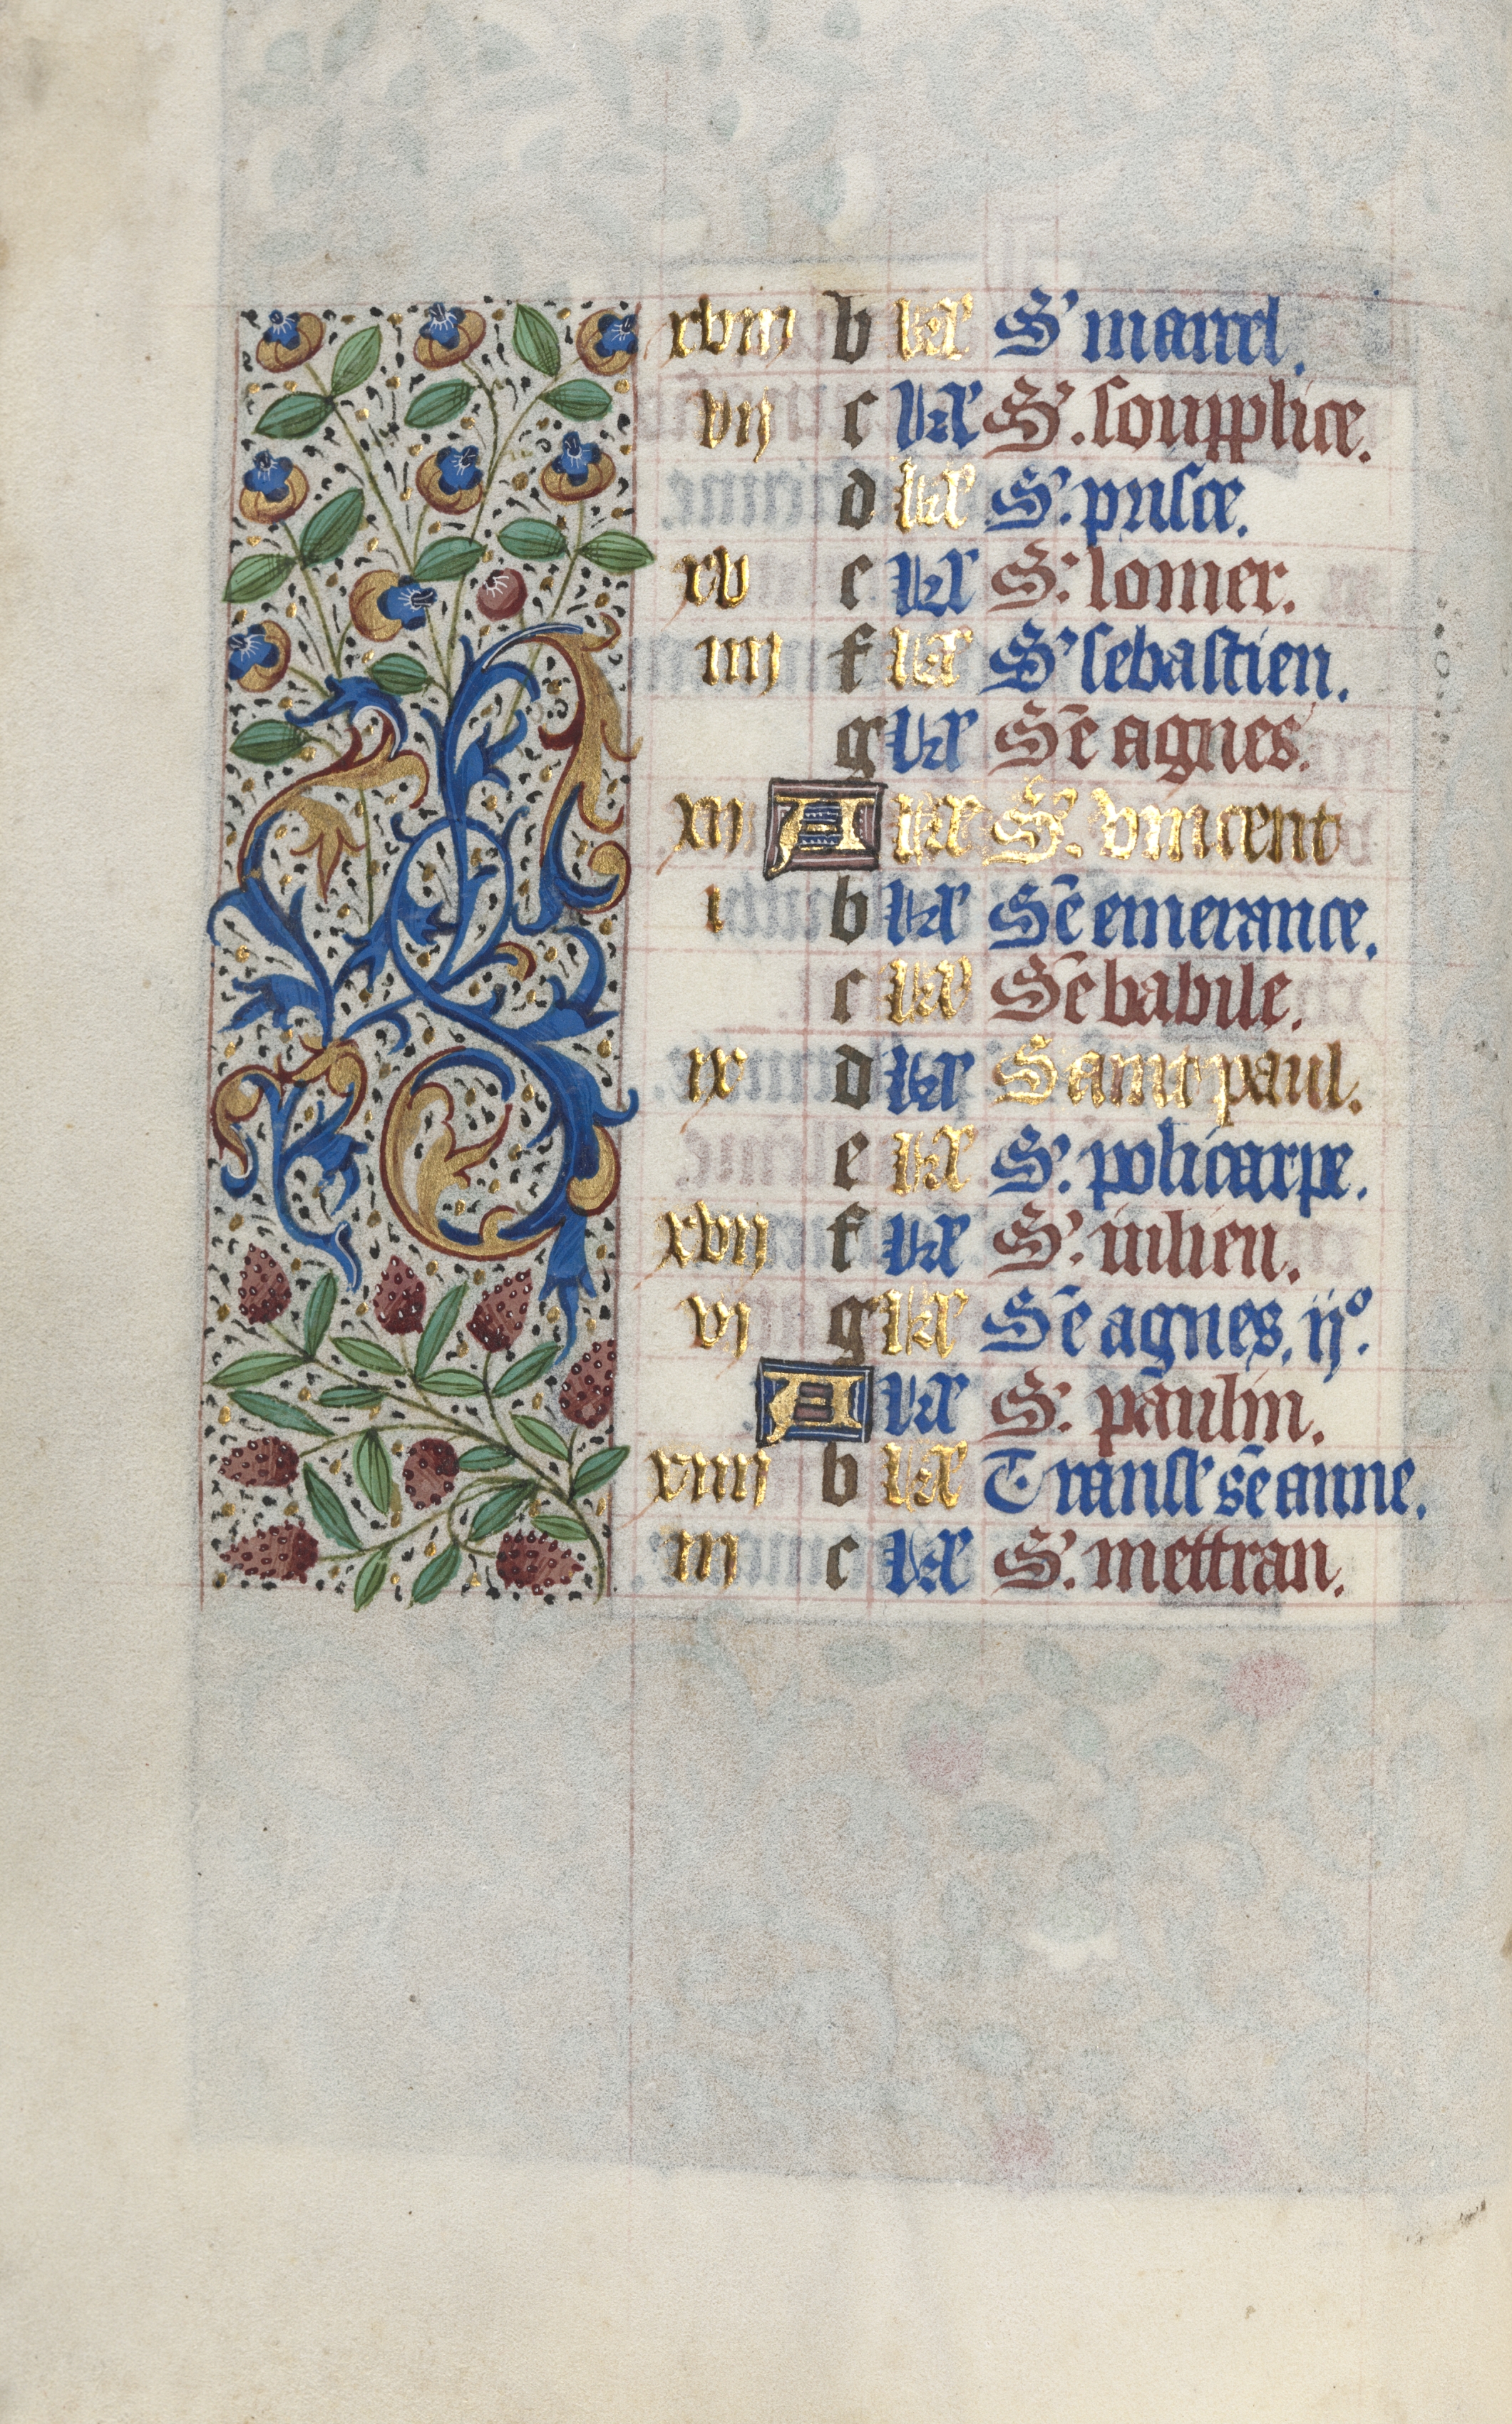 xviii b kł S' marcel.
vii c kł S'. soupplice.
d kł S'. prisce.
xv e kł S'. lomer.
iiii f kł S' sebastien.
g kł Sē agnes.
xii A kł S'. vincent
i b kł Sē emerance.
c kł Sē babile.
ix d kł Saint paul.
e kł S'. policarpe.
xvii f kł S'. iulien.
vi g kł Sē agnes. ij°.
A kł S'. paulin.
xiiii b kł Transl' sē anne.
iii c kł S'. mettran.